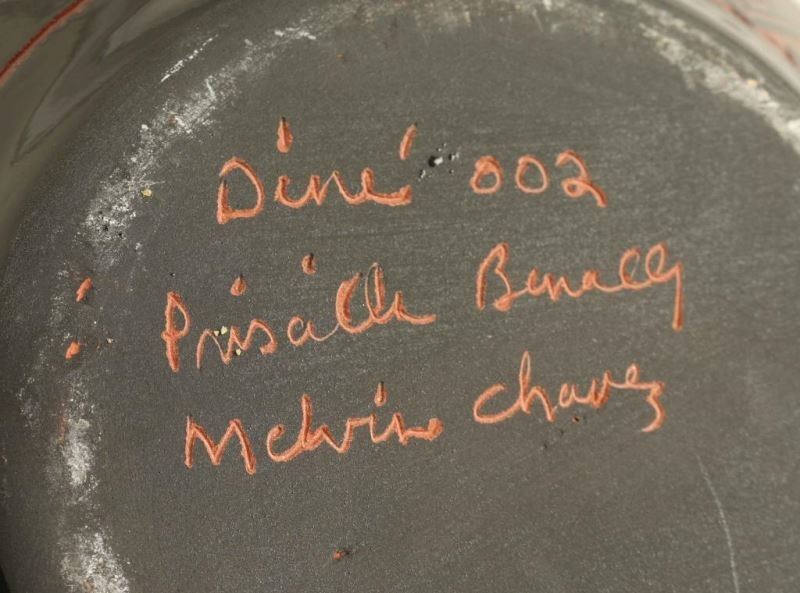 Diné 002
Prisilla Benally
Melvin Chavez